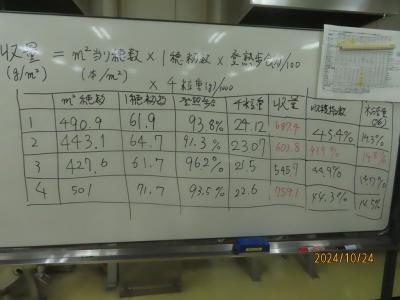 収量 = m²当り穂数 × 1穂籾数 × 登熟歩合(%)/100
(g/m²) (本/m²)
× 千粒重(g)/1000
m²穂数 1穂籾数 登熟歩合 千粒重 収量 収穫指数
1 490.9 61.9 93.8% 24.12 687.4 45.4% 14.3%
2 443.1 64.7 91.3% 23.07 603.8
3 427.6 61.7 96.2% 21.5 545.7 44.9%
4 501 71.7 93.5% 22.6 759.1 44.3% 14.5%
2024/10/24